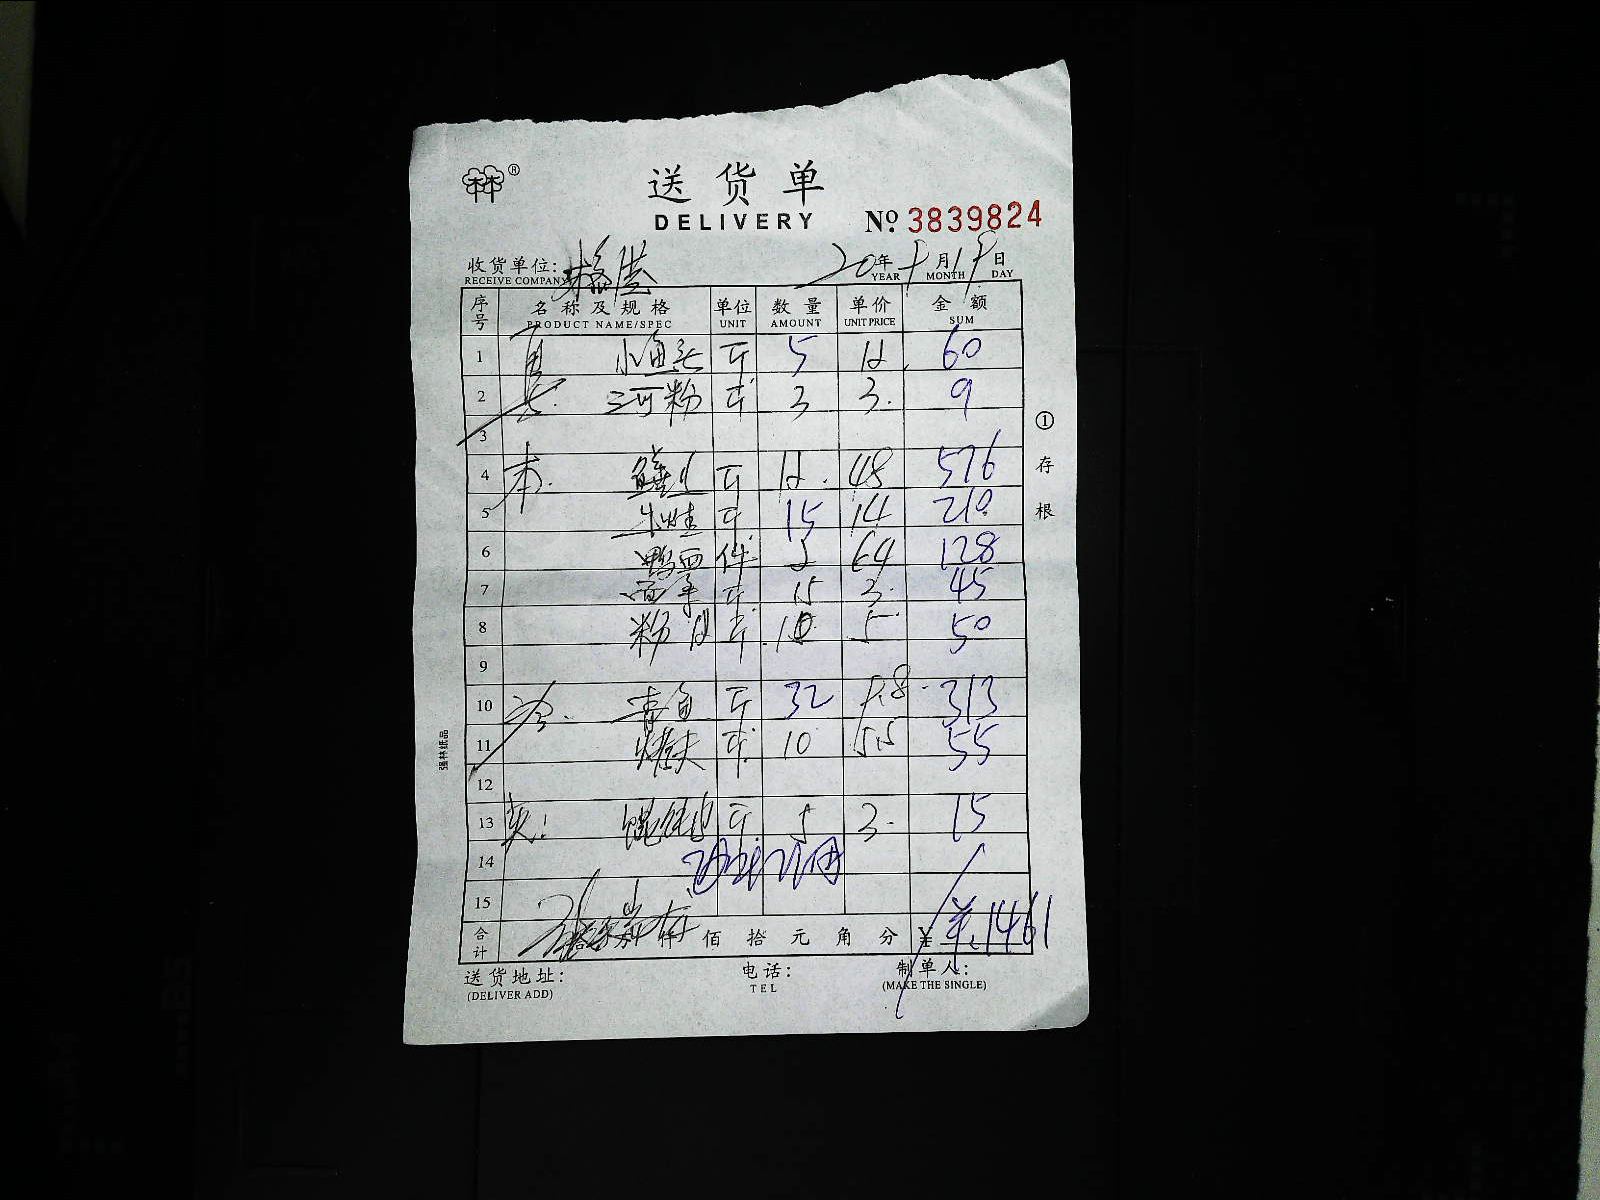 林®
送货单
DELIVERY
№ 3839824
收货单位:
20年9月19日
RECEIVE COMPANY YEAR MONTH DAY
序号 名称及规格 单位 数量 单价 金额
PRODUCT NAME/SPEC UNIT AMOUNT UNIT PRICE SUM
1 小鱼 斤 5 12 60
2 河粉 斤 3 3 9
3
4 斤 12 48 576
5 牛蛙 斤 15 14 210
6 鸭血 件 2 64 128
7 斤 15 3 45
8 粉 斤 10 5 50
9
10 青鱼 斤 32 9.8 313
11 烤夫 斤 10 5.5 55
12
13 馄饨皮 斤 5 3 15
14
15
合计 佰 拾 元 角 分 ¥ 1461
送货地址: 电话: 制单人:
(DELIVER ADD) TEL (MAKE THE SINGLE)
①存根
强林纸品